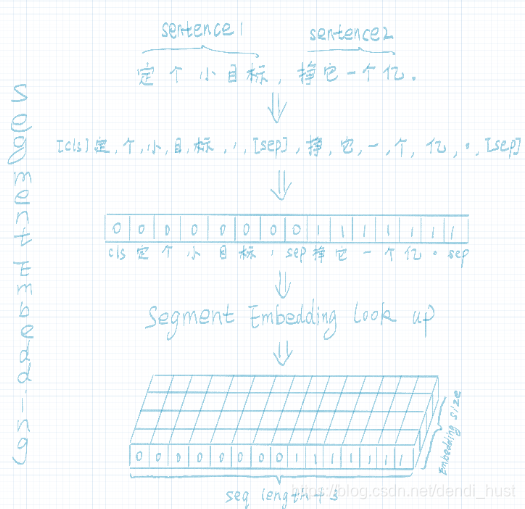 sentence1 sentence2
定个小目标，挣它一个亿。
[cls]定,个,小,目,标,，,[sep],挣,它,一,个,亿,。,[sep]
0 0 0 0 0 0 0 0 1 1 1 1 1 1 1
cls 定 个 小 目 标 ， sep 挣 它 一 个 亿 。 sep
Segment Embedding Look up
0 0 0 0 0 0 0 0 1 1 1 1 1 1 1
Embedding size
seq length+3
Segment Embedding
https://blog.csdn.net/dendi_hust